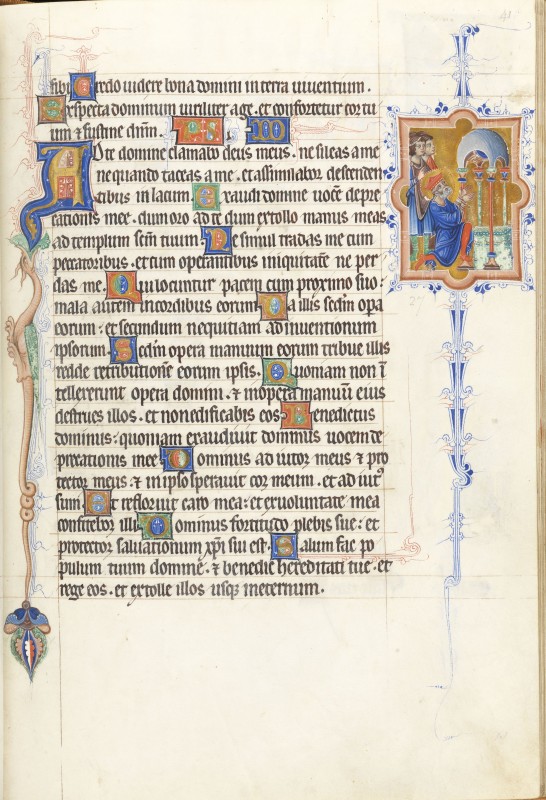 41
sibi. Credo videre bona domini in terra viventium.
Expecta dominum viriliter age. et confortetur cor tu
um ⁊ sustine dnm̄.
A D te domine clamabo deus meus. ne sileas a me
ne quando taceas a me. et assimilabor descenden
tibus in lacum. Exaudi domine vocē depre
cationis mee. dum oro ad te dum extollo manus meas
ad templum scm̄ tuum. Ne simul tradas me cum
peccatoribus. et cum operantibus iniquitatē ne per
das me. Qui locuntur pacem cum proximo suo.
mala autem in cordibus eorum. Da illis scd̄m opa
eorum. et secundum nequitiam adinventionum
ipsorum. Scd̄m opera manuum eorum tribue illis
redde retributionē eorum ipsis. Quoniam non ī
tellexerunt opera domini. ⁊ in opera manuū eius
destrues illos. et non edificabis eos. Benedictus
dominus: quoniam exaudivit dominus vocem de
precationis mee. Dominus adiutor meus ⁊ pro
tector meus: ⁊ in ipso speravit cor meum. et adiut9
sum. Et refloruit caro mea: et ex voluntate mea
confitebor illi. Dominus fortitudo plebis sue: et
protector salvationum xp̄i sui est. Salvum fac po
pulum tuum domine. ⁊ benedic hereditati tue. et
rege eos. et extolle illos usq; in eternum.
27